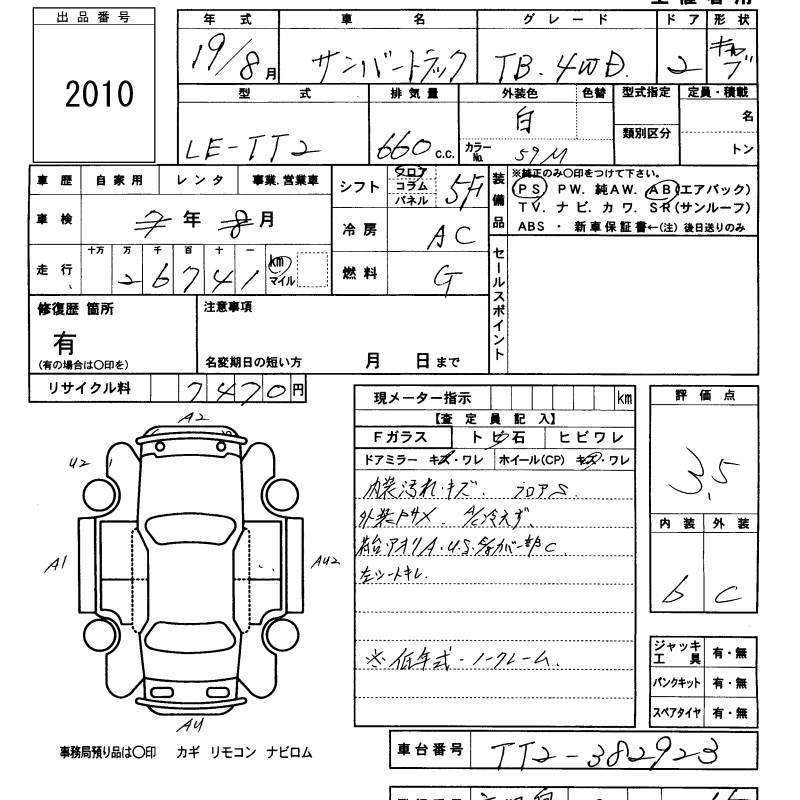 出品番号
2010
年式
19/8月
車名
サンバートラック
グレード
TB. 4WD.
ドア
2
形状
キャブ
型式
LE-TT2
排気量
660 c.c.
外装色
白
色替
カラーNo. 59M
型式指定
類別区分
定員・積載
名
トン
車歴 自家用 レンタ 事業.営業車
車検 7年8月
走行 十万 万 千 百 十 一
2 6 7 4 1 km マイル
シフト フロア コラム パネル 5F
冷房 AC
燃料 G
装備品
※純正のみ○印をつけて下さい。
PS PW. 純AW. AB(エアバック)
TV. ナビ. カワ. SR(サンルーフ)
ABS ・ 新車保証書←(注)後日送りのみ
セールスポイント
修復歴 箇所
有
(有の場合は○印を)
注意事項
名変期日の短い方 月 日まで
リサイクル料 7470円
現メーター指示 km
【査定員記入】
Fガラス トビ石 ヒビワレ
ドアミラー キズ・ワレ ホイール(CP) キズ・ワレ
内装汚れ・キズ. フロアS
外装 A/C冷えず.
荷台アオリA・U.S. C.
左シートキレ.
※低年式・ノークレーム.
評価点
3.5
内装 外装
b C
ジャッキ工具 有・無
パンクキット 有・無
スペアタイヤ 有・無
A2
U2
A1
AU2
AU
事務局預り品は○印 カギ リモコン ナビロム
車台番号 TT2-382923